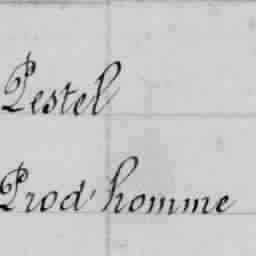 Pestel
Prod'homme